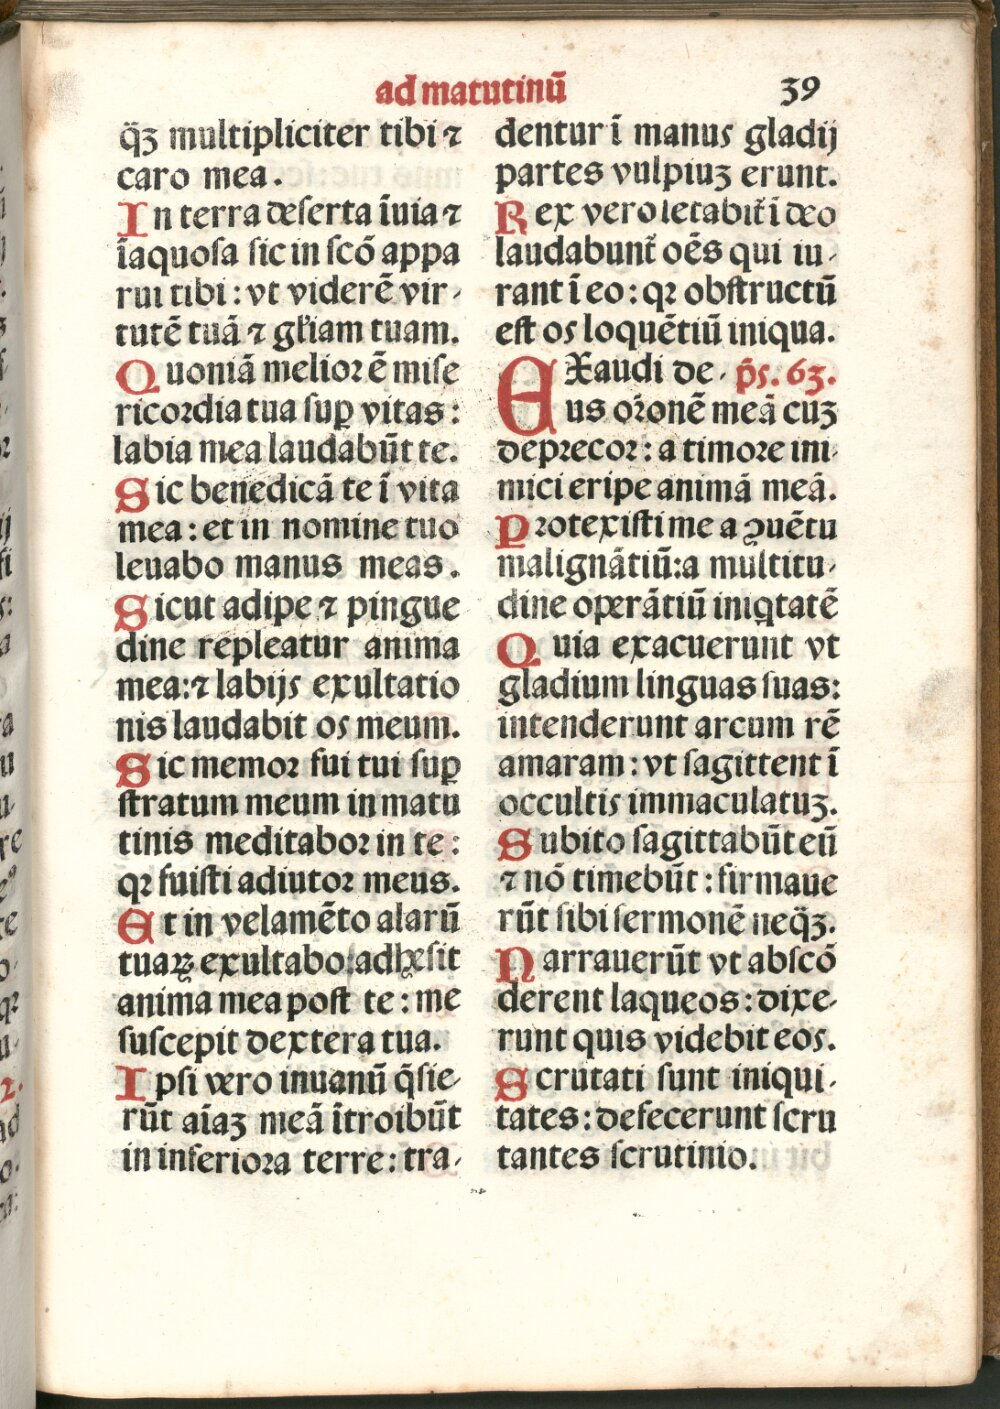 ad matutinū 39
q̄ꝫ multipliciter tibi ⁊
caro mea.
In terra deserta īuia ⁊
īaquosa sic in scō appa
rui tibi: vt viderē vir-
tutē tuā ⁊ gl̄iam tuam.
Quoniā melior ē mise
ricordia tua suꝑ vitas:
labia mea laudabūt te.
Sic benedicā te ī vita
mea: et in nomine tuo
leuabo manus meas.
Sicut adipe ⁊ pingue
dine repleatur anima
mea: ⁊ labijs exultatio
nis laudabit os meum.
Sic memor fui tui suꝑ
stratum meum in matu
tinis meditabor in te:
qꝛ fuisti adiutor meus.
Et in velamēto alarū
tuaꝝ exultabo: adhesit
anima mea post te: me
suscepit dextera tua.
Ipsi vero inuanū q̄sie-
rūt aīaꝫ meā ītroibūt
in inferiora terre: tra-
dentur ī manus gladij
partes vulpiuꝫ erunt.
Rex vero letabit̄ ī deo
laudabunt̄ oēs qui iu-
rant ī eo: qꝛ obstructū
est os loquētiū iniqua.
EXaudi de- p̄s. 63.
us orōnē meā cuꝫ
deprecor: a timore ini-
mici eripe animā meā.
Protexisti me a ꝯuētu
malignātiū: a multitu-
dine operātiū iniq̇tatē
Quia exacuerunt vt
gladium linguas suas:
intenderunt arcum rē
amaram: vt sagittent ī
occultis immaculatuꝫ.
Subito sagittabūt eū
⁊ nō timebūt: firmaue
rūt sibi sermonē neq̄ꝫ.
Narrauerūt vt abscō
derent laqueos: dixe-
runt quis videbit eos.
Scrutati sunt iniqui-
tates: defecerunt scru
tantes scrutinio.